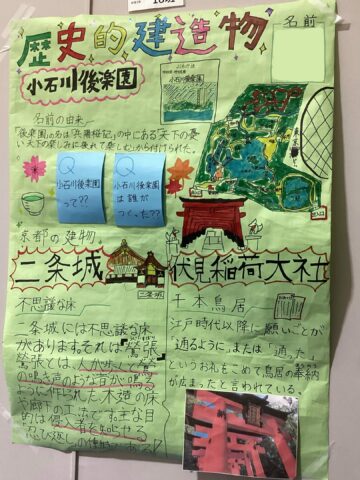 歴史的建造物
名前
小石川後楽園
小石川後楽園
名前の由来
「後楽園」の名は「兵庫楼記」の中にある「天下の憂い
天下の楽しみに後れて楽しむ」から付けられた。
Q
小石川後楽園
って??
Q
小石川後楽園
は誰が
つくった??
京都の建物。
二条城
二条城
伏見稲荷大社
不思議な床
二条城には不思議な床
があります。それは「鶯張
鶯張とは、人が歩くと
の鳴き声のような音が鳴る
ように作られた、木造の床
や廊下の工法です。主な目
的は侵入者を知らせる
千本鳥居
江戸時代以降に願いごとが
「通るように」、または「通った」
というお礼もこめて鳥居の奉納
が広まったと言われている。